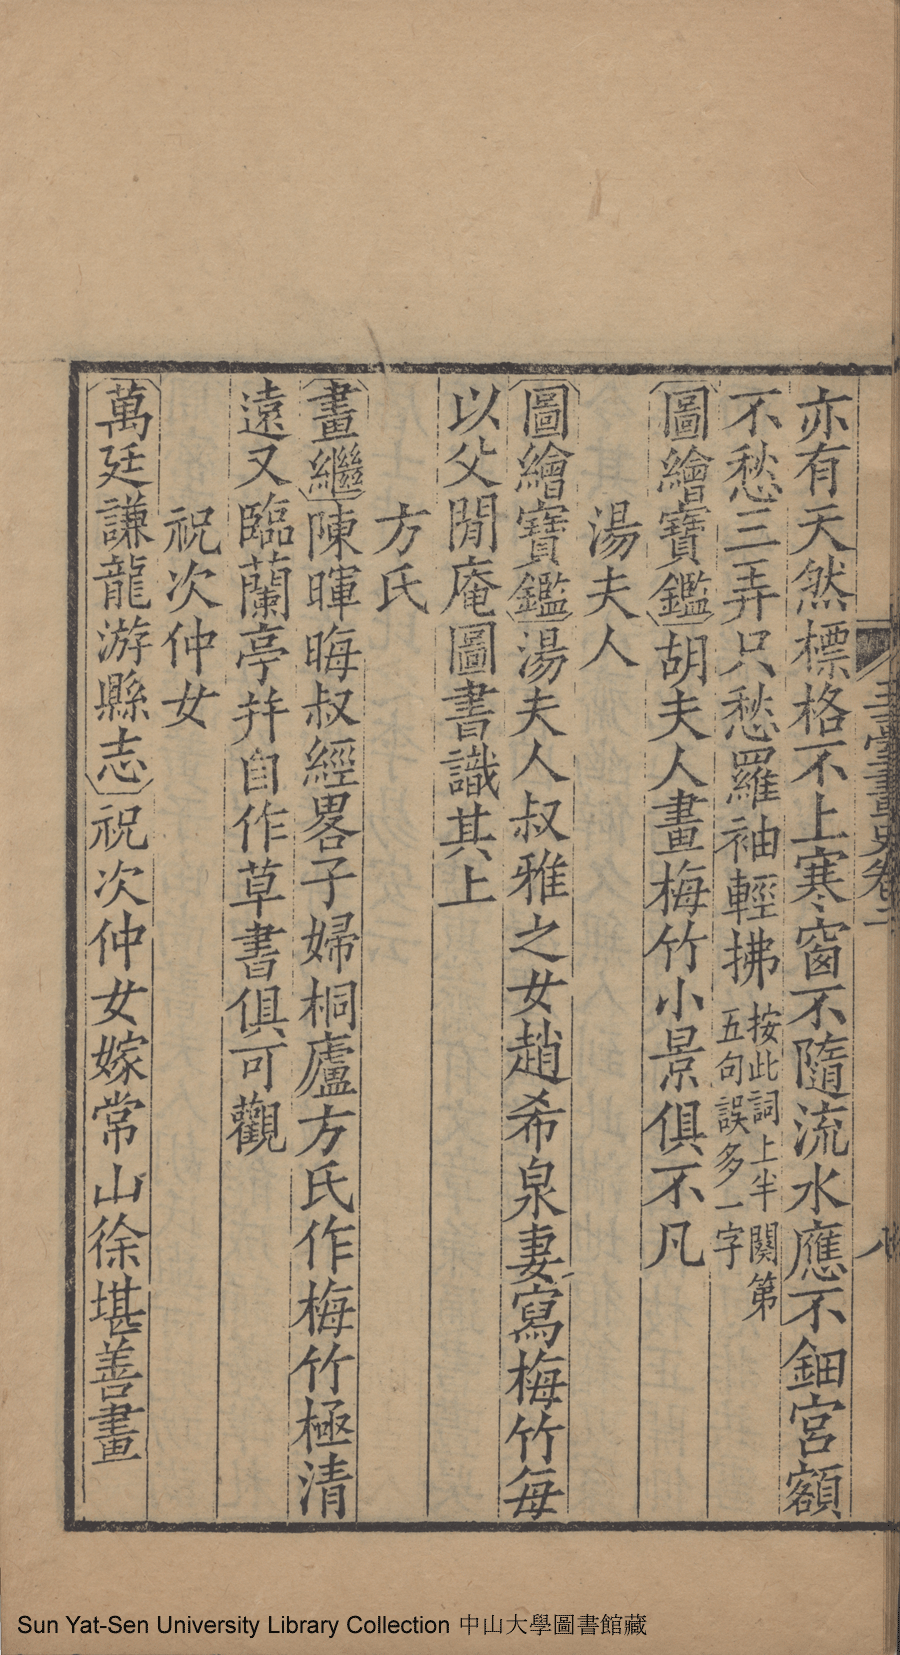 亦有天然標格不上寒窗不隨流水應不鈿宮額
不愁三弄只愁羅袖輕拂
按此詞上半闋第
五句誤多一字
圖繪寶鑑胡夫人畫梅竹小景俱不凡
湯夫人
圖繪寶鑑湯夫人叔雅之女趙希泉妻寫梅竹每
以父閒庵圖書識其上
方氏
畫繼陳暉晦叔經畧子婦桐廬方氏作梅竹極清
遠又臨蘭亭幷自作草書俱可觀
祝次仲女
萬廷謙龍游縣志祝次仲女嫁常山徐堪善畫
Sun Yat-Sen University Library Collection 中山大學圖書館藏